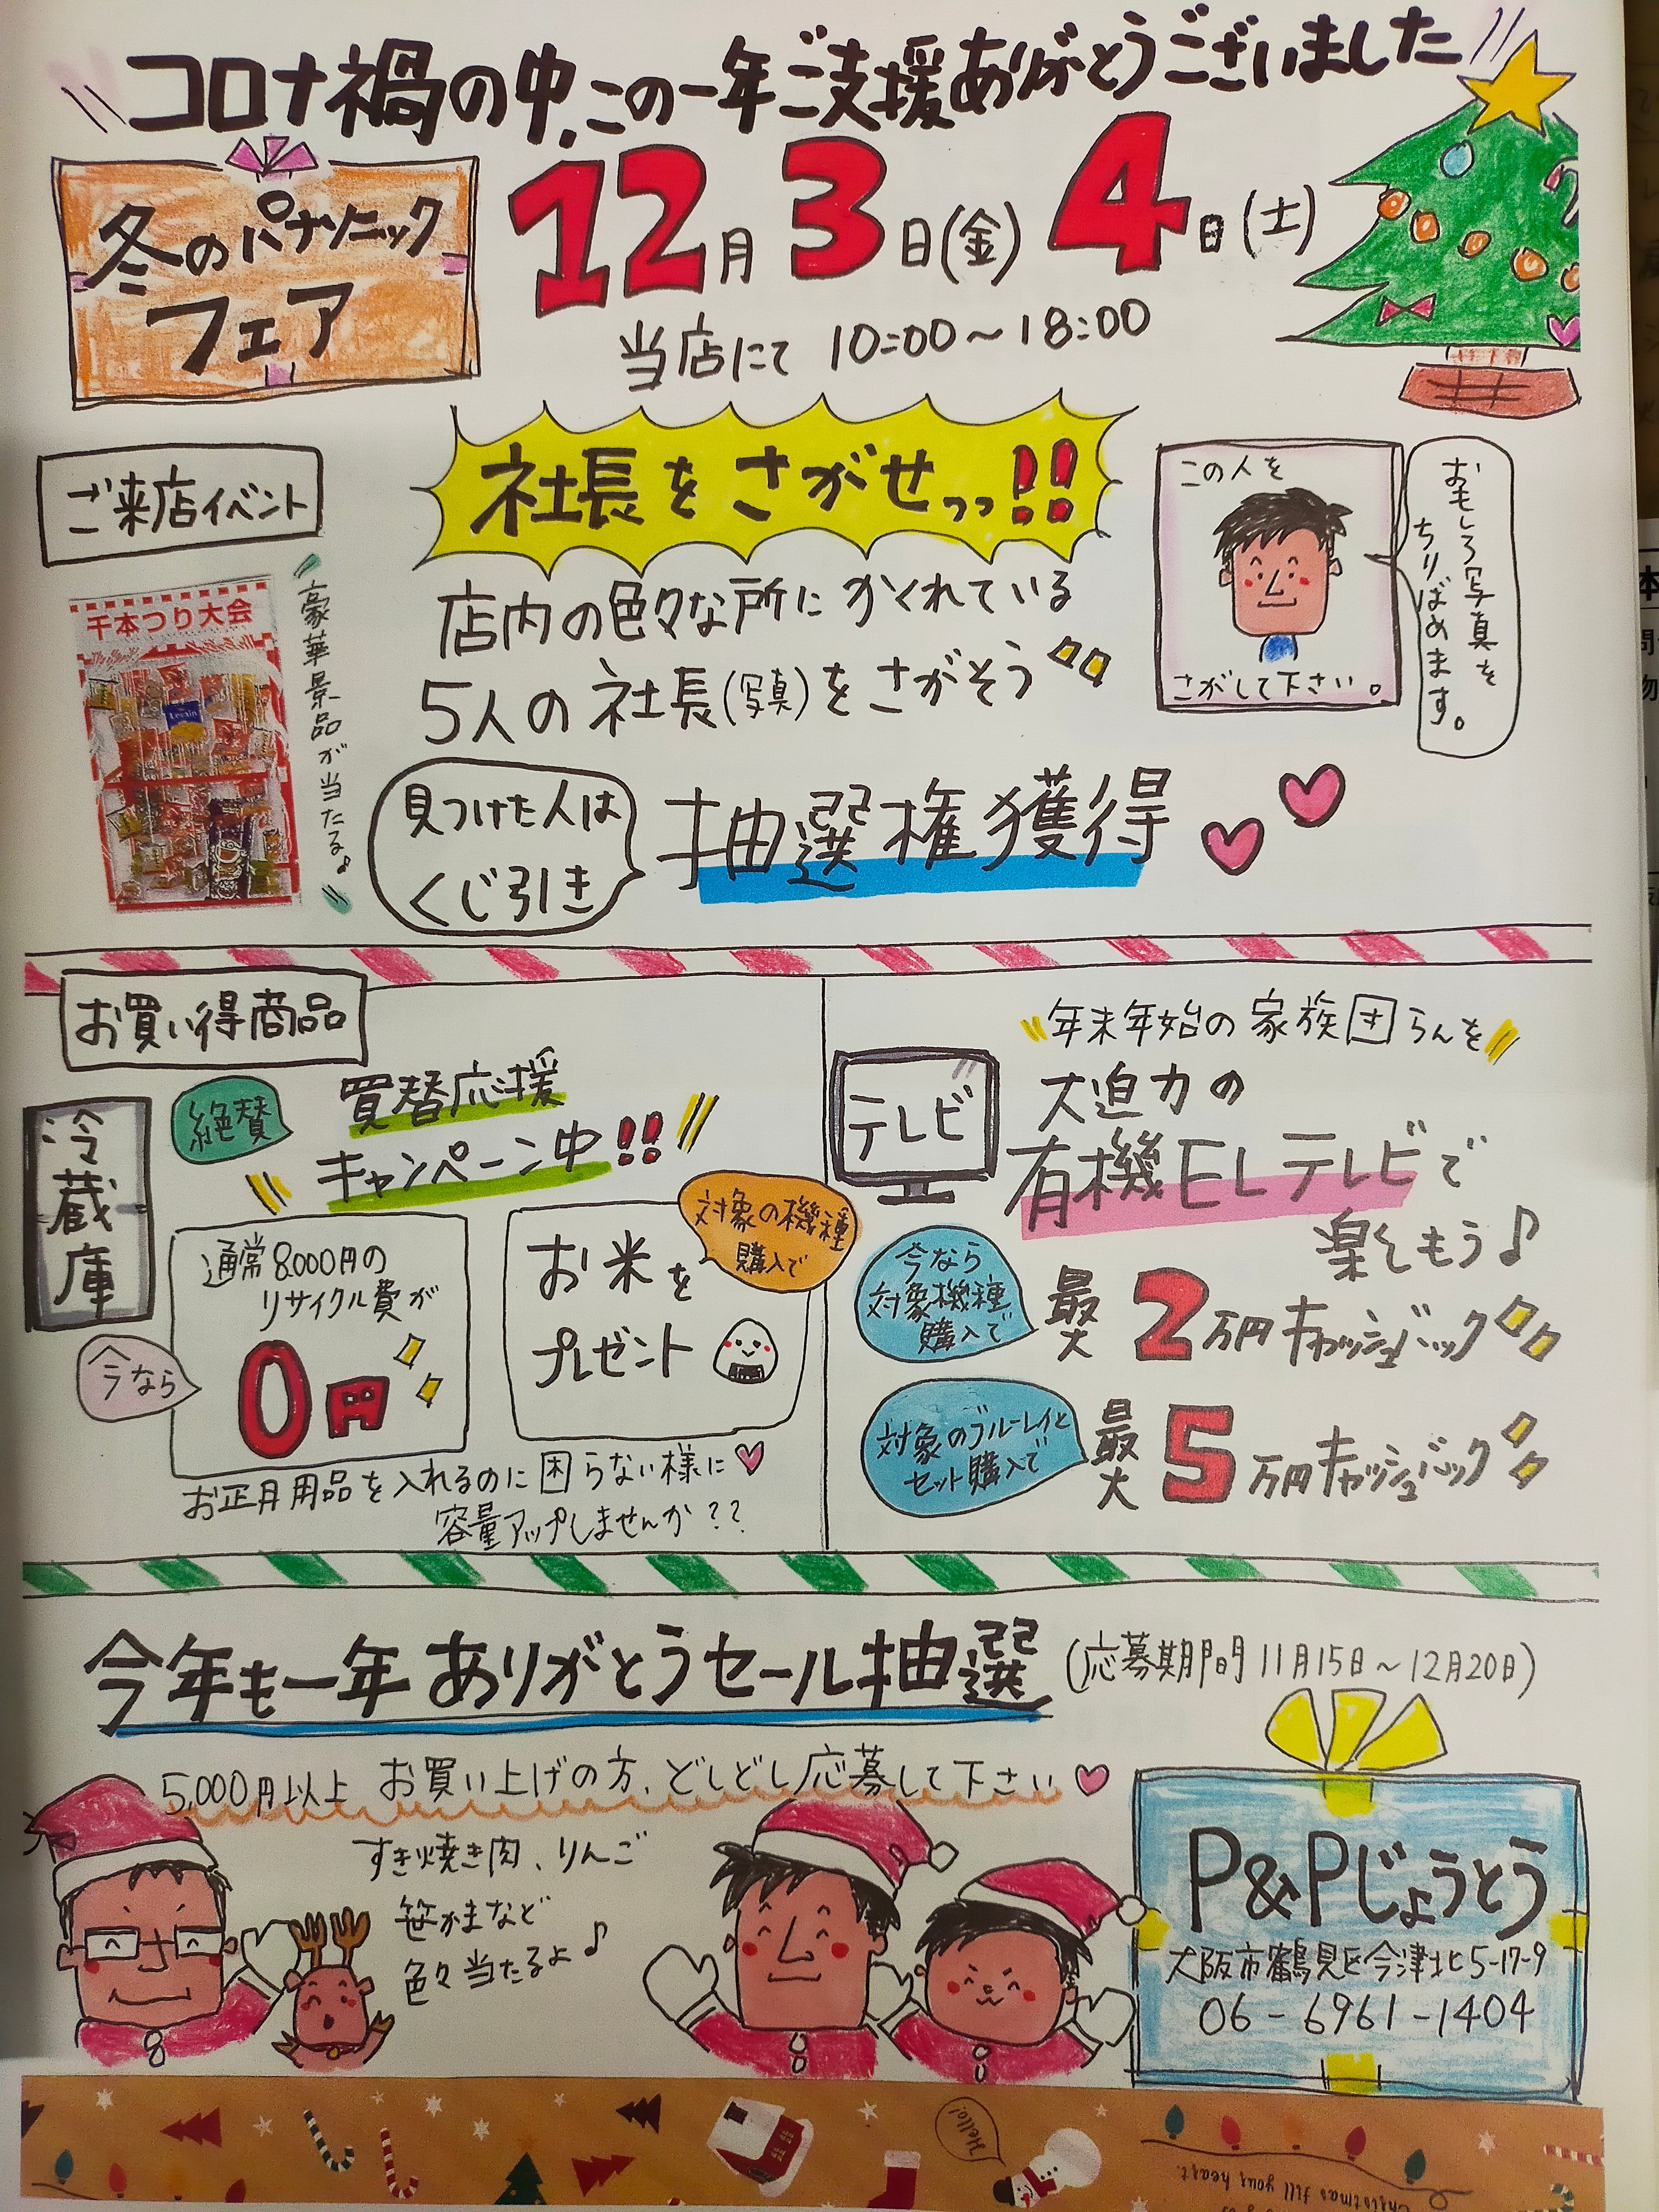 コロナ禍の中、この一年ご支援ありがとうございました
冬のパナソニック
フェア
12月3日(金)4日(土)
当店にて 10:00～18:00
ご来店イベント
社長をさがせっっ!!
この人を
さがして下さい。
おもしろ写真を
ちりばめます。
千本つり大会
豪華景品が当たる♪
店内の色々な所にかくれている
5人の社長(写真)をさがそう
見つけた人は
くじ引き
抽選権獲得
お買い得商品
冷蔵庫
絶賛
買替応援
キャンペーン中!!
今なら
通常8,000円の
リサイクル費が
0円
対象の機種
購入で
お米を
プレゼント
お正月用品を入れるのに困らない様に
容量アップしませんか??
年末年始の家族団らんを
テレビ
大迫力の
有機ELテレビで
楽しもう♪
今なら
対象機種
購入で
最大2万円キャッシュバック
対象のブルーレイと
セット購入で
最大5万円キャッシュバック
今年も一年ありがとうセール抽選(応募期間 11月15日～12月20日)
5,000円以上 お買い上げの方、どしどし応募して下さい
すき焼き肉、りんご
笹かまなど
色々当たるよ♪
P&Pじょうとう
大阪市鶴見区今津北5-17-9
06-6961-1404
Hello!
Christmas fill your heart.